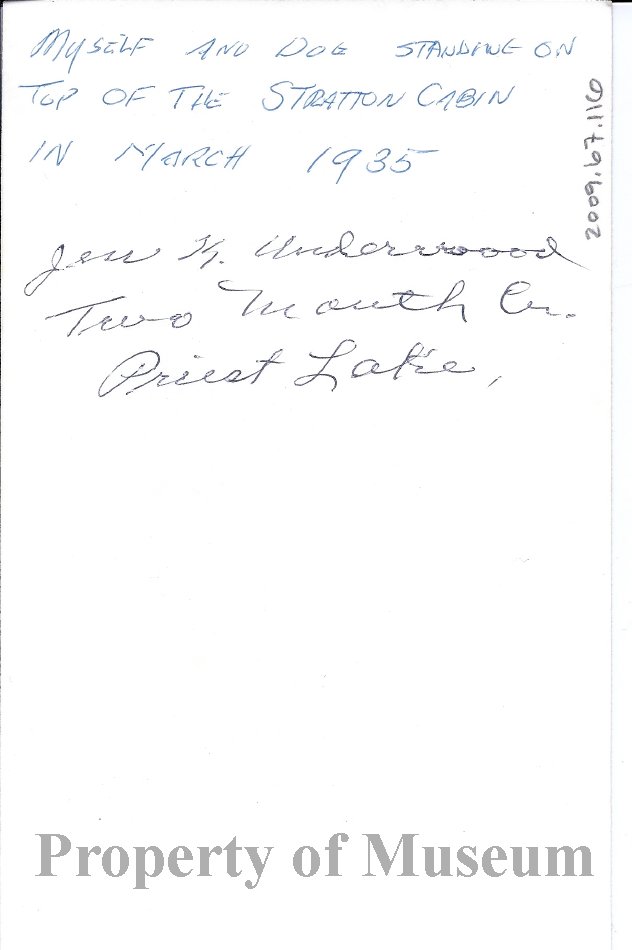 MYSELF AND DOG STANDING ON
TOP OF THE STRATTON CABIN
IN MARCH 1935
Jess K. Underwood
Two Mouth Cr.
Priest Lake,
2009.67.116
Property of Museum